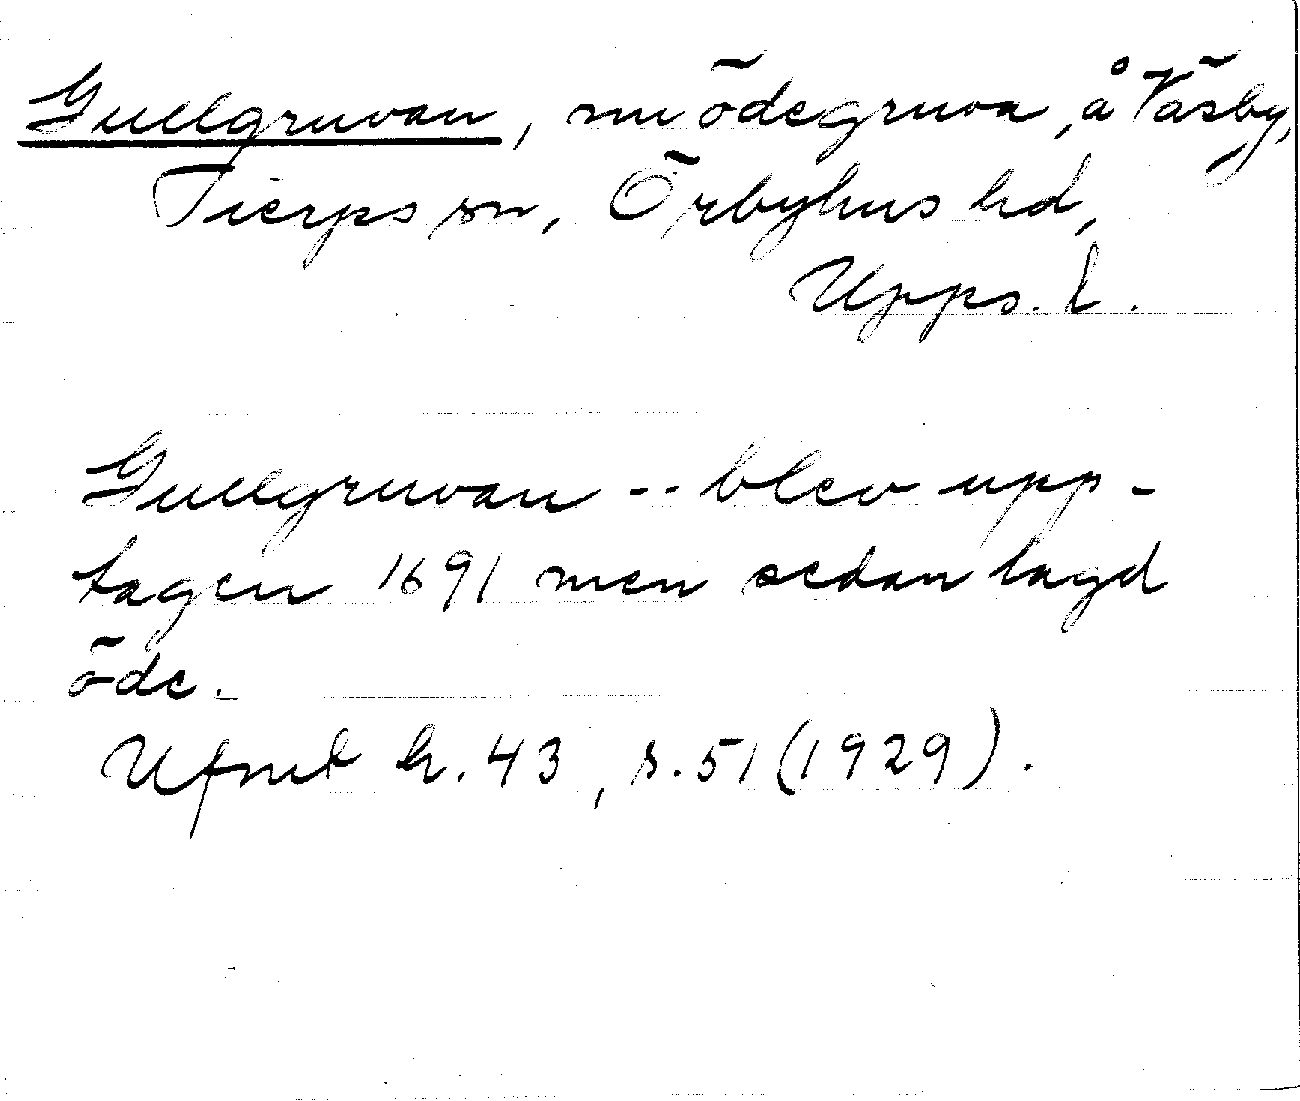 Gullgruvan, nu ödegruva, å Väsby,
Tierps sn, Örbyhus hd,
Upps. l.
Gullgruvan -- blev upp-
tagen 1691 men sedan lagd
öde.
Ufmt h. 43, s. 51 (1929).